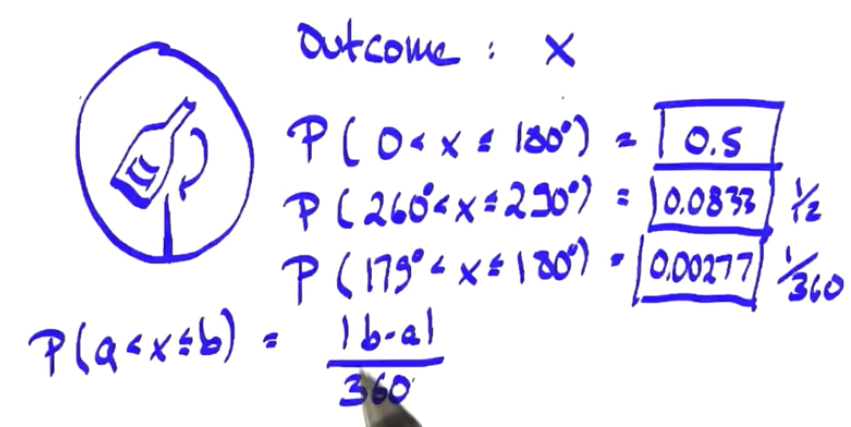 Outcome : X
P(0 < x ≤ 180°) = 0.5
P(260° < x ≤ 290°) = 0.0833 1/12
P(179° < x ≤ 180°) = 0.00277 1/360
P(a < x ≤ b) = |b-a| / 360